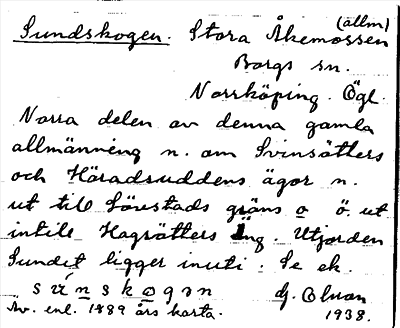 Sundskogen. Stora Åkemossen (allm)
Borgs sn.
Norrköping. Ögl.
Norra delen av denna gamla
allmänning n. om Svinsätters
och Häradsuddens ägor n.
ut till Lövestads gräns o ö. ut
intill Hagsätters äng. Utjorden
Sundet ligger inuti. Se ek.
sunskogən G.
Av. enl. 1889 års karta. 1938.